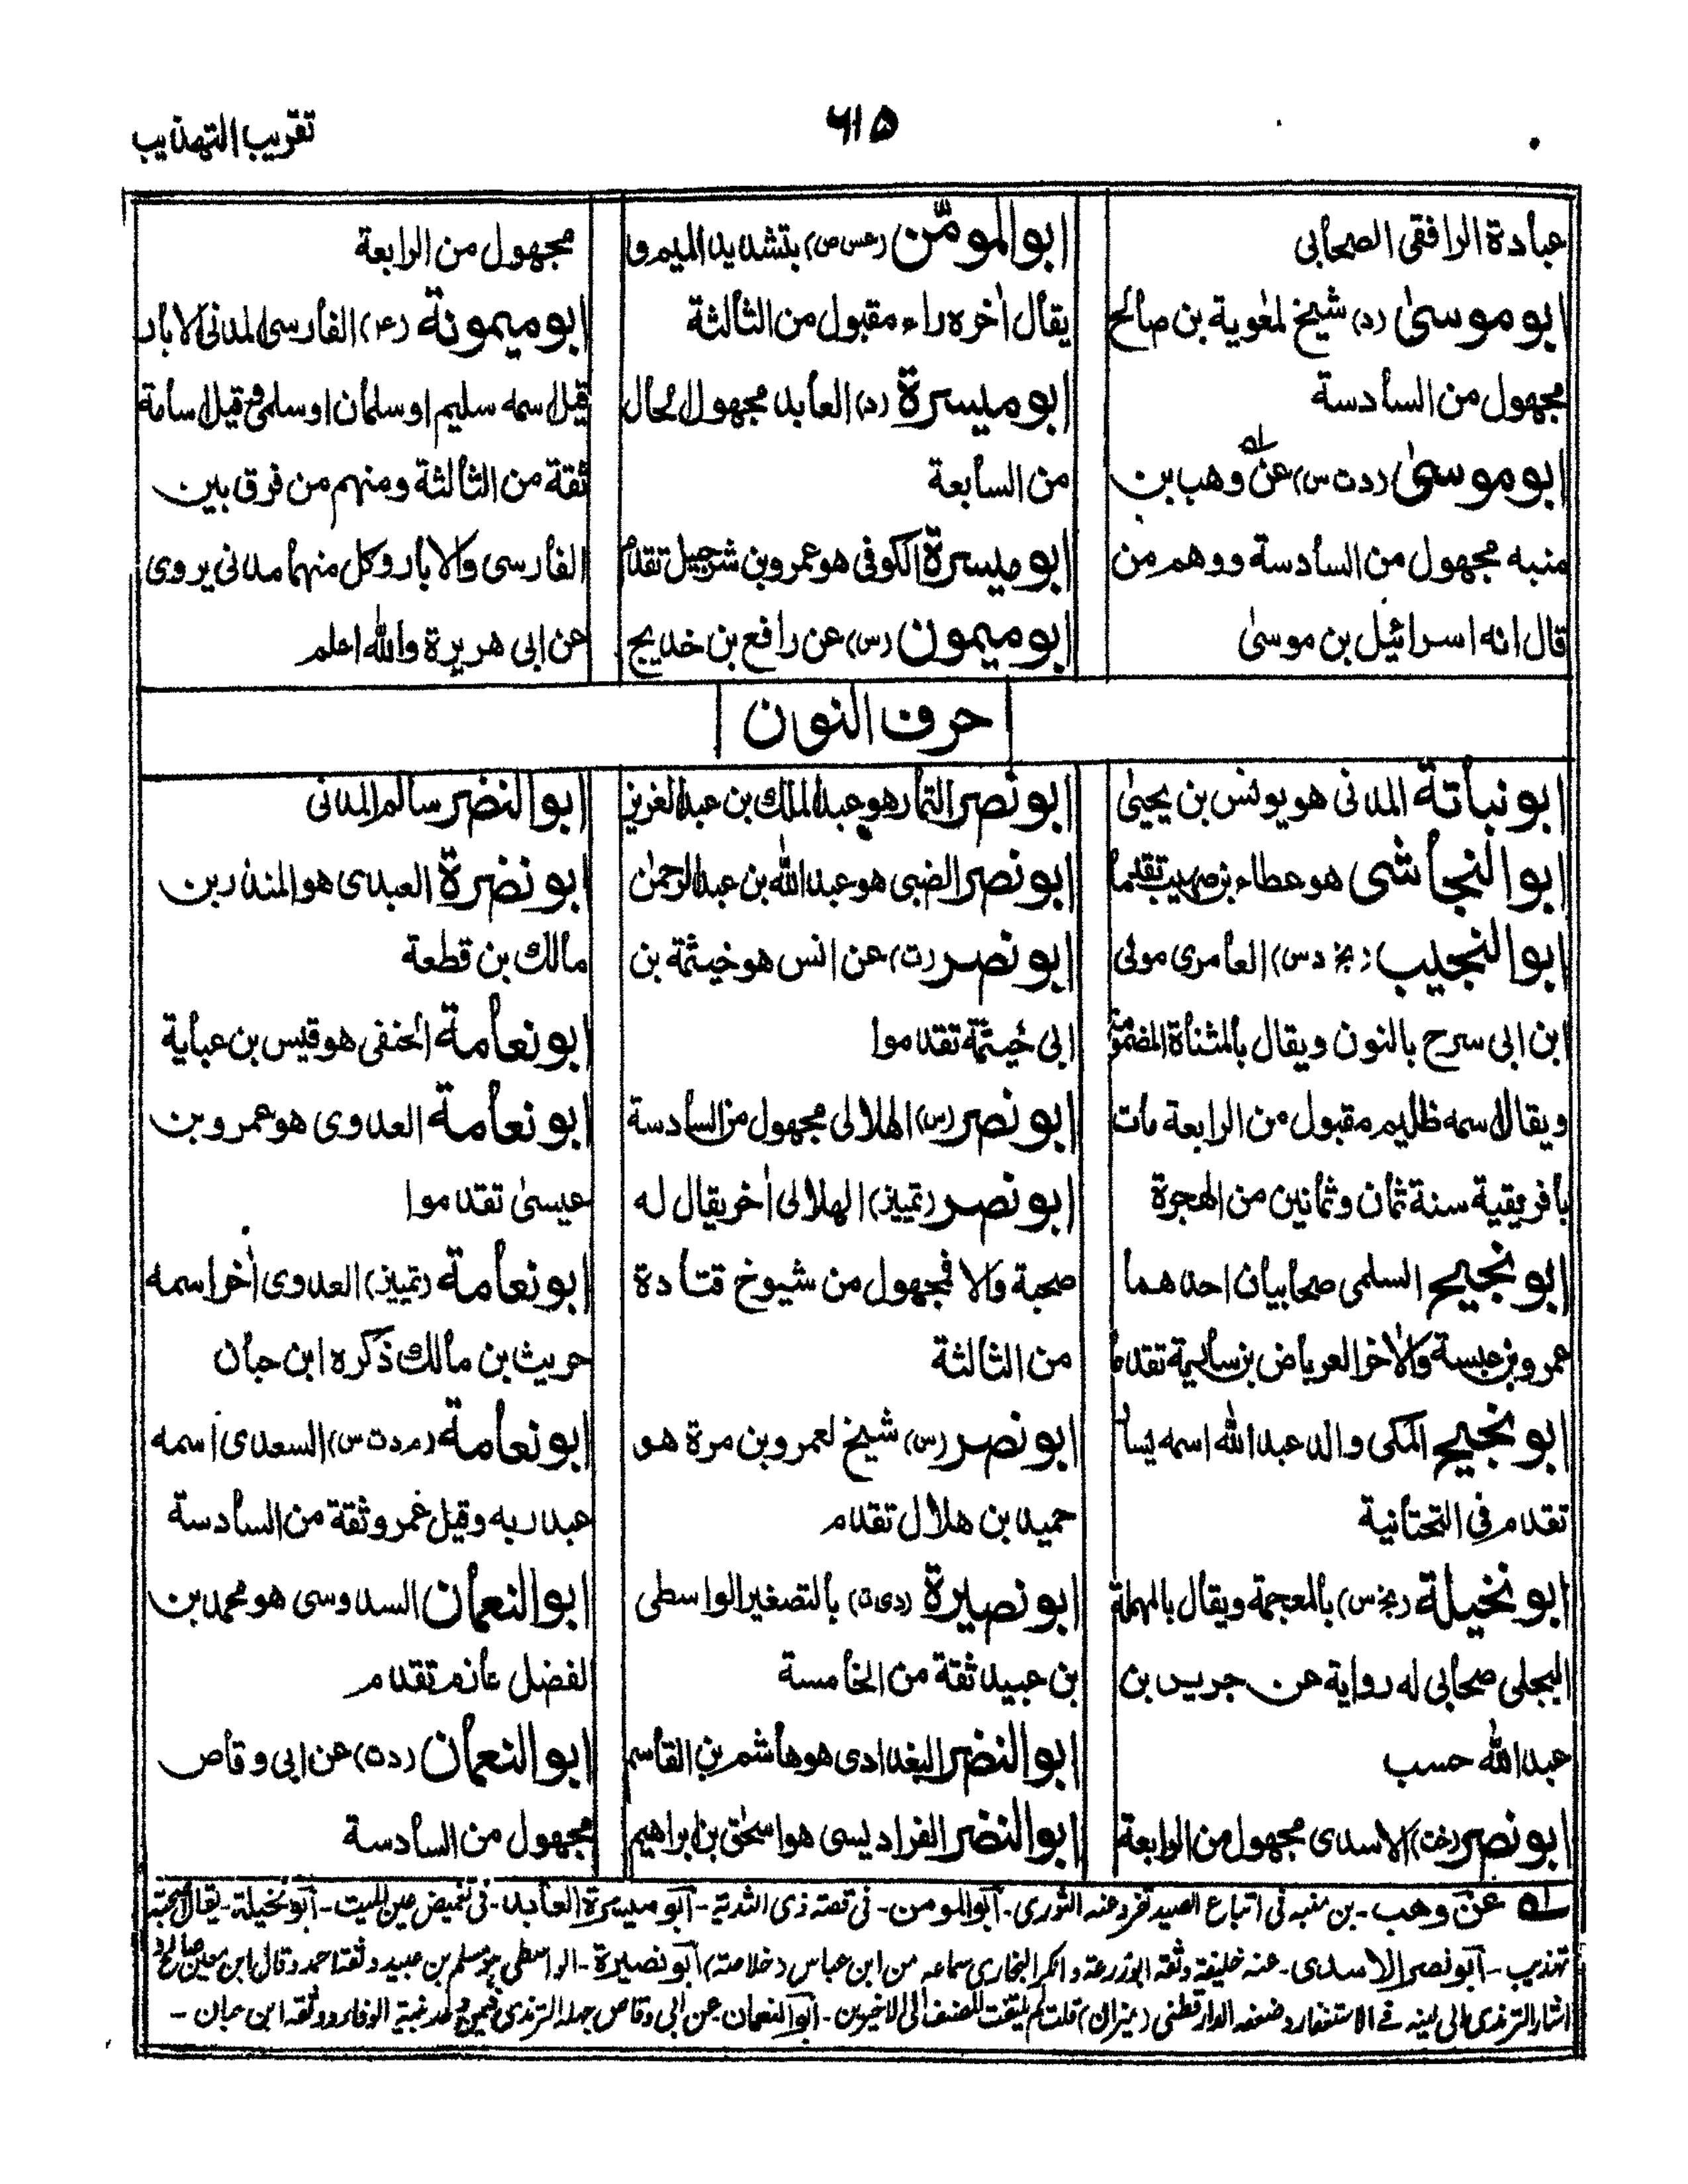 تقريب التهذيب
٦١٥
عبادة الرافقى الصحابى
ابو موسىٰ (د) شيخ لمعٰوية بن صالح
مجهول من السادسة
ابو موسىٰ (د ت س) عن وهب بن
منبه مجهول من السادسة ووهم من
قال انه اسرائيل بن موسىٰ
ابو المومّن (عس ص) بتشديد الميم و
يقال اٰخره راء مقبول من الثالثة
ابو ميسرة (د) العابد مجهول الحال
من السابعة
ابو ميسرة الكوفى هو عمرو بن شرحبيل تقدم
ابو ميمون (س) عن رافع بن خديج
مجهول من الرابعة
ابو ميمونة (عم) الفارسى المدنى الابار
قيل اسمه سليم او سلمان او سلمى وقيل اسامة
ثقة من الثالثة ومنهم من فرق بين
الفارسى والابار وكل منهما مدنى يروى
عن ابى هريرة والله اعلم
حرف النون
ابو نباتة المدنى هو يونس بن يحيىٰ
ابو النجاشى هو عطاء بن صهيب تقدما
ابو النجيب (بخ د س) العامرى مولى
ابن ابى سرح بالنون ويقال بالمثناة المضمومة
ويقال اسمه ظليم مقبول من الرابعة مات
بافريقية سنة ثمان وثمانين من الهجرة
ابو نجيح السلمى صحابيان احدهما
عمرو بن عبسة والاٰخر العرباض بن سارية تقدما
ابو نجيح المكى والد عبد الله اسمه يسار
تقدم فى التحتانية
ابو نخيلة (بخ س) بالمعجمة ويقال بالمهملة
البجلى صحابى له رواية عن جرير بن
عبد الله حسب
ابو نصر (خت) الاسدى مجهول من الرابعة
ابو نصر التمار هو عبد الملك بن عبد العزيز
ابو نصر الضبى هو عبد الله بن عبد الرحمٰن
ابو نصر (ت) عن انس هو خيثمة بن
ابى خيثمة تقدموا
ابو نصر (س) الهلالى مجهول من السادسة
ابو نصر (تمييز) الهلالى اٰخر يقال له
صحبة والا فمجهول من شيوخ قتادة
من الثالثة
ابو نصر (س) شيخ لعمرو بن مرة هو
حميد بن هلال تقدم
ابو نصيرة (د ت) بالتصغير الواسطى
بن عبيد ثقة من الخامسة
ابو النضر البغدادى هو هاشم بن القاسم
ابو النضر الفراديسى هو اسحٰق بن ابراهيم
ابو النضر سالم المدنى
ابو نضرة العبدى هو المنذر بن
مالك بن قطعة
ابو نعامة الحنفى هو قيس بن عباية
ابو نعامة العدوى هو عمرو بن
عيسىٰ تقدموا
ابو نعامة (تمييز) العدوى اٰخر اسمه
حريث بن مالك ذكره ابن حبان
ابو نعامة (م د ت س) السعدى اسمه
عبد ربه وقيل عمرو ثقة من السادسة
ابو النعمان السدوسى هو محمد بن
الفضل عارم تقدم
ابو النعمان (د ت) عن ابى وقاص
مجهول من السادسة
له عن وهب - بن منبه فى اتباع الصيد تفرد عنه الثورى - ابو المومن - فى قصة ذى الثدية - ابو ميسرة العابد - فى تغميض عين الميت - ابو نخيلة - يقال صحبة
تهذيب - ابو نصر الاسدى - عنه خليفة وثقه ابو زرعة وانكر البخارى سماعه من ابن عباس (خلاصة) ابو نصيرة - الواسطى هو مسلم بن عبيد وثقه احمد وقال ابن معين صالح و
اشار الترمذى الى لينه فى الاستغفار وضعفه الدارقطنى (ميزان) قلت لم يلتفت المصنف الى الاخيرين - ابو النعمان عن ابى وقاص جهله الترمذى فى غيبة الوفاء ووثقه ابن حبان -